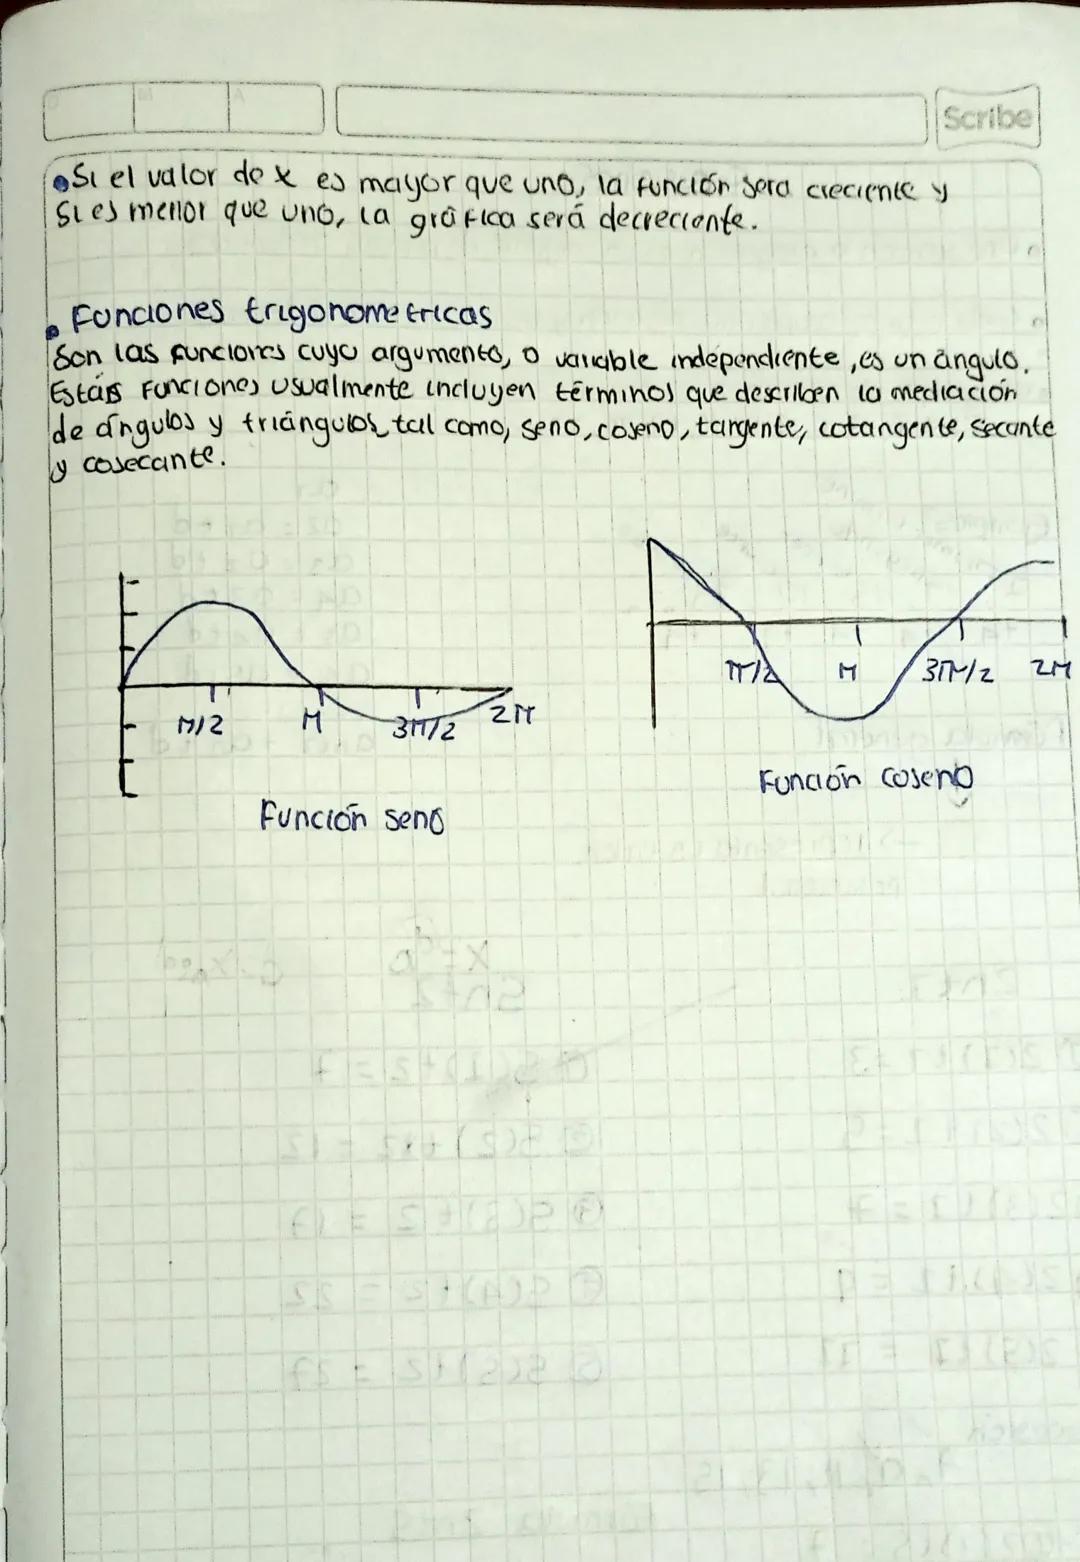 Scribe
•Si el valor de x es mayor que uno, la función sera creciente y
si es menor que uno, la gráfica será decreciente.
• Funciones trigonometricas
Son las funciones cuyo argumento, o variable independiente, es un ángulo.
Estás funciones usualmente incluyen términos que describen la mediación
de ángulos y triángulos, tal como, seno, coseno, tangente, cotangente, secante
y cosecante.
π/2 π 3π/2 2π
Función seno
π/2 π 3π/2 2π
Función coseno